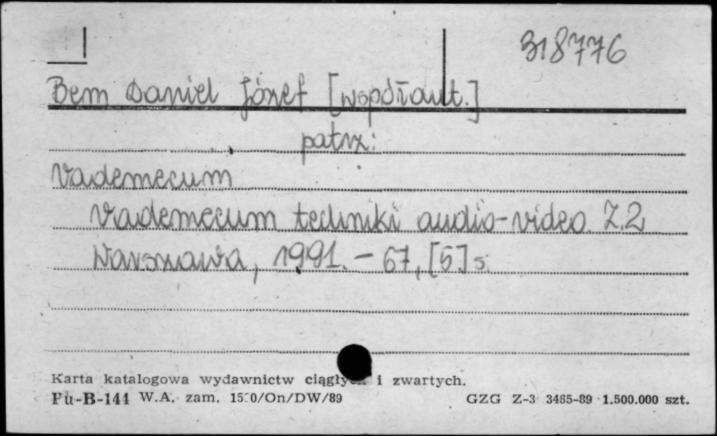 318776
Bem Daniel Józef [współaut.]
patrz:
Vademecum
Vademecum techniki audio-video. Z.2
Warszawa, 1991. - 67, [5] s.
Karta katalogowa wydawnictw ciągłych i zwartych.
Pu-B-144 W.A. zam. 1500/On/DW/89 GZG Z-3 3465-89 1.500.000 szt.